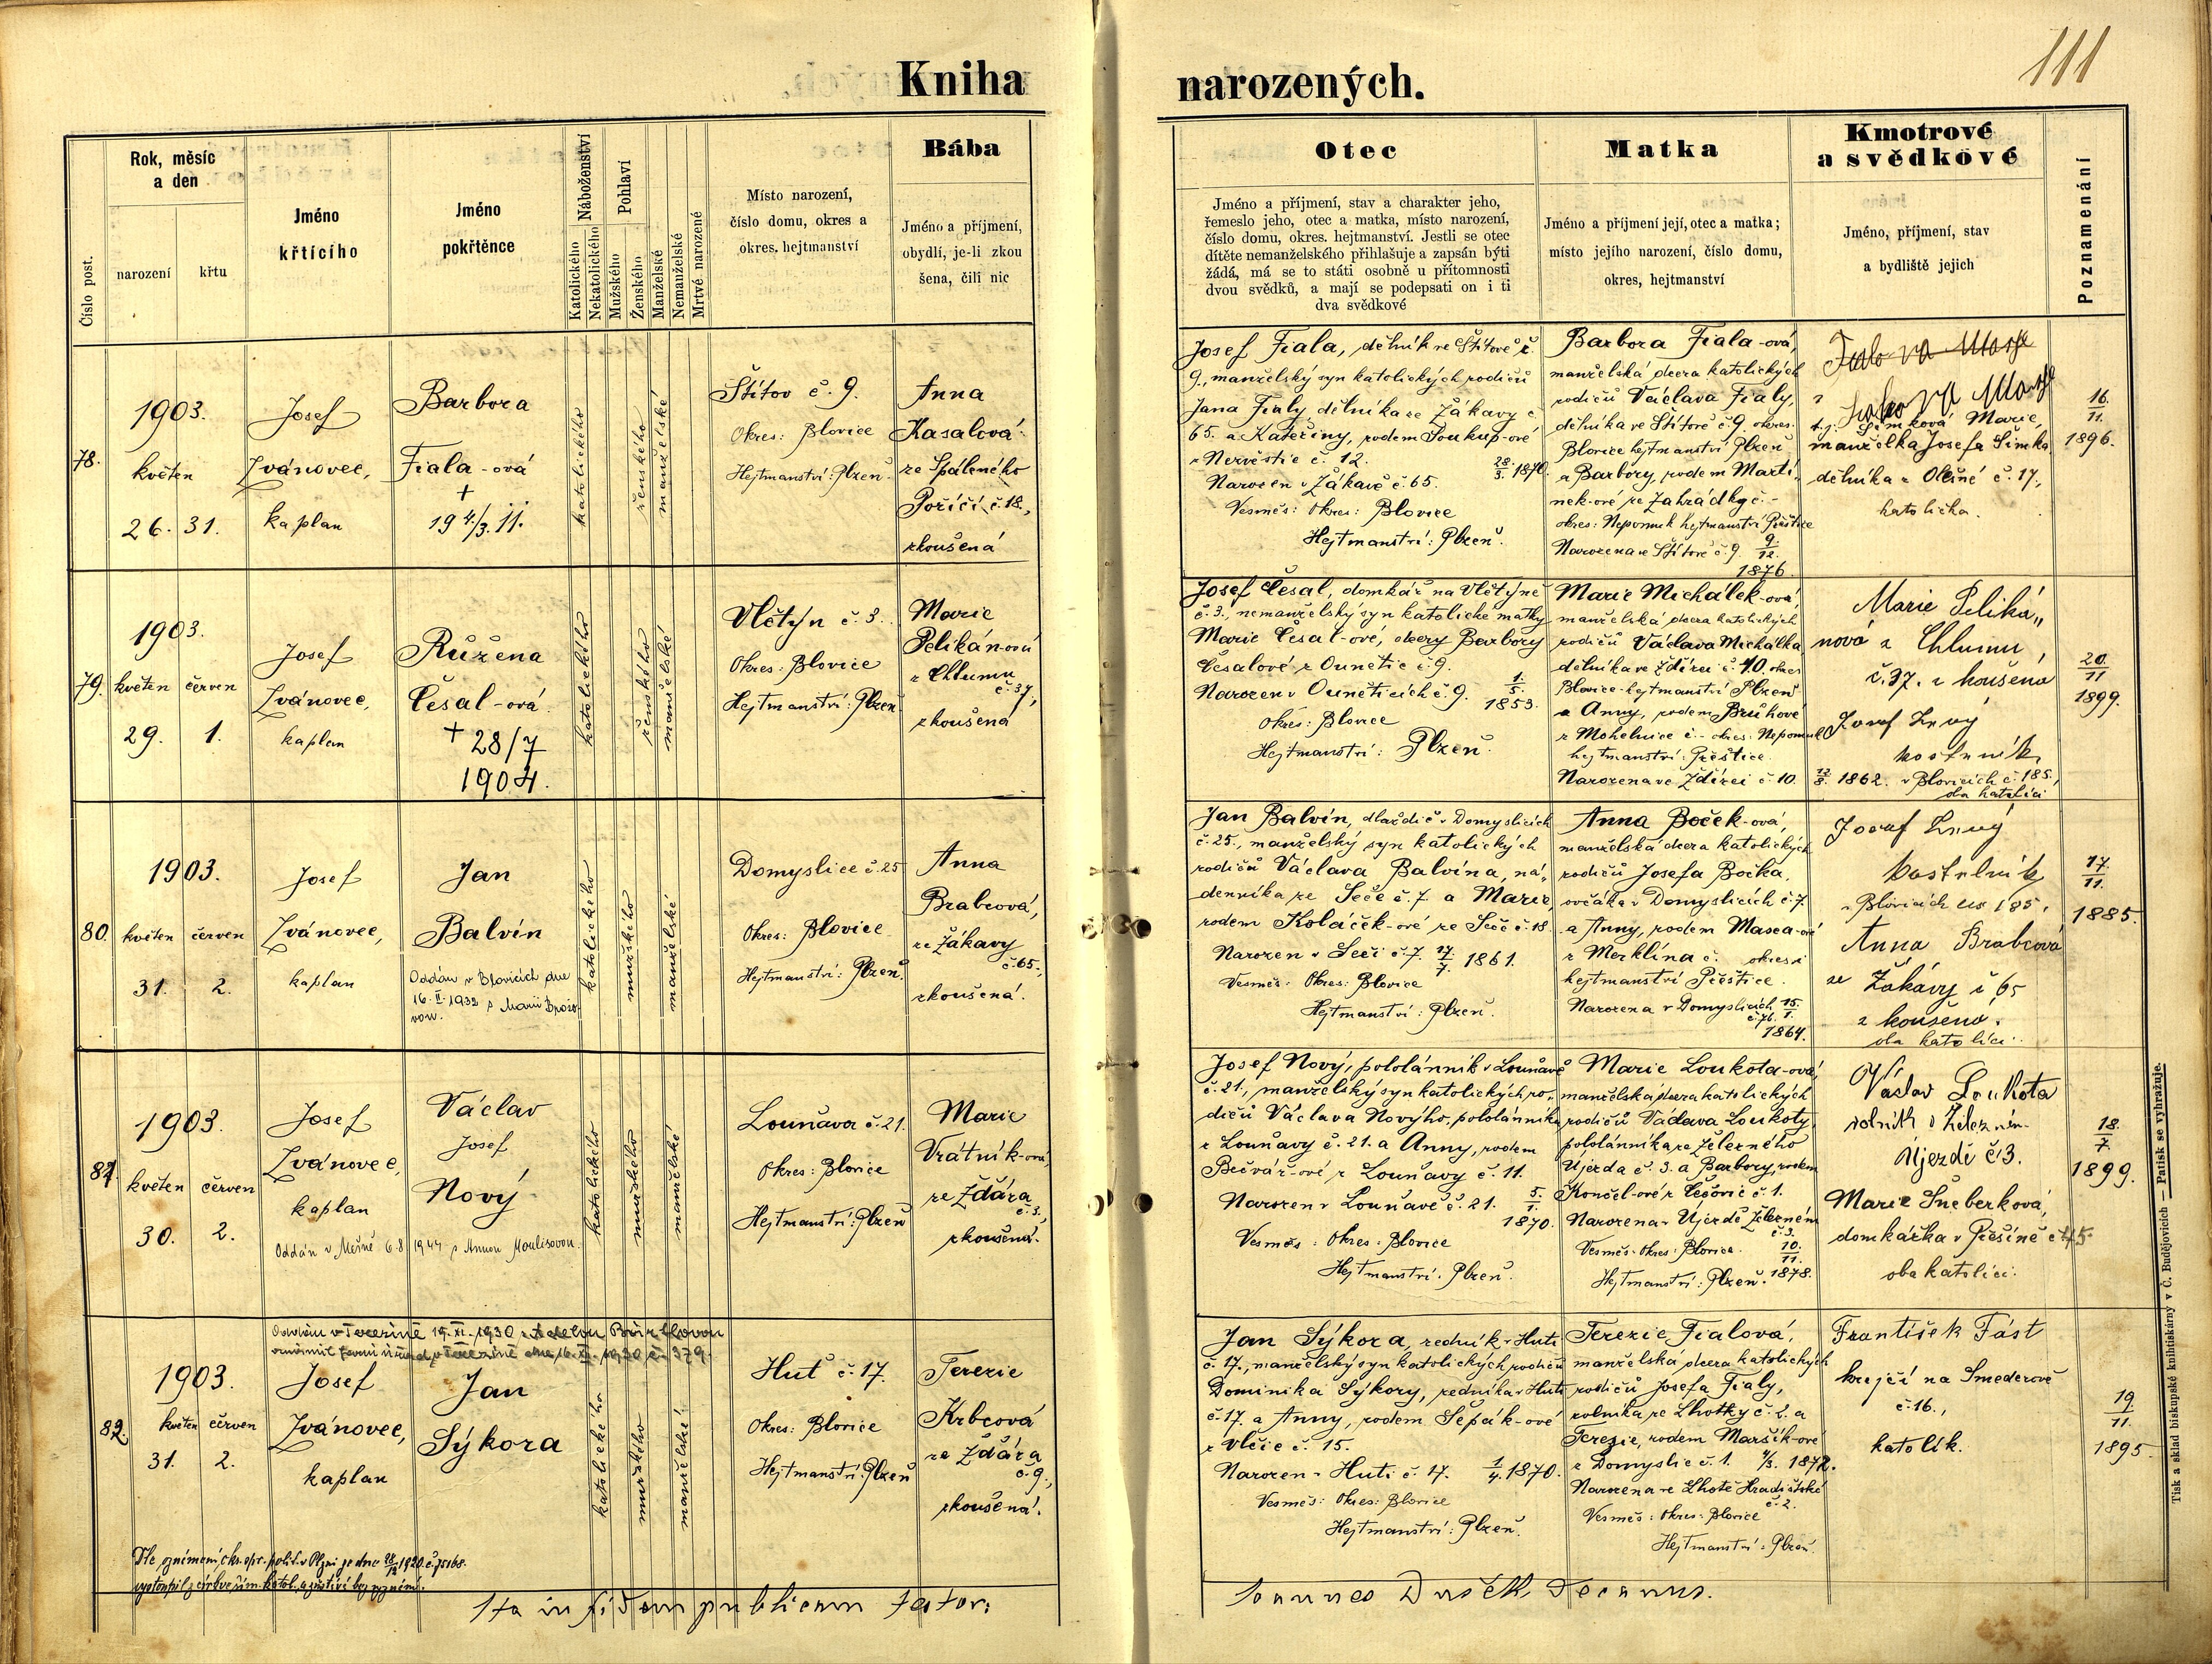 111
Kniha narozených.
Číslo post.
Rok, měsíc
a den
narození
křtu
Jméno
křtícího
Jméno
pokřtěnce
Náboženství
Katolického
Nekatolického
Pohlaví
Mužského
Ženského
Manželské
Nemanželské
Mrtvé narozené
Místo narození,
číslo domu, okres a
okres. hejtmanství
Bába
Jméno a příjmení,
obydlí, je-li zkou
šena, čili nic
Otec
Jméno a příjmení, stav a charakter jeho,
řemeslo jeho, otec a matka, místo narození,
číslo domu, okres. hejtmanství. Jestli se otec
dítěte nemanželského přihlašuje a zapsán býti
žádá, má se to státi osobně u přítomnosti
dvou svědků, a mají se podepsati on i ti
dva svědkové
Matka
Jméno a příjmení její, otec a matka;
místo jejího narození, číslo domu,
okres, hejtmanství
Kmotrové
a svědkové
Jméno, příjmení, stav
a bydliště jejich
Poznamenání
78.
1903.
květen
26. 31.
Josef
Ivánovec,
kaplan
Barbora
Fiala-ová
+
19 4/3. 11.
katolického
ženského
manželské
Štítov č. 9.
Okres: Blovice
Hejtmanství: Plzeň
Anna
Kasalová
ze Spáleného
Poříčí č. 18.,
zkoušená
Josef Fiala, dělník ve Štítově č.
9., manželský syn katolických rodičů
Jana Fialy dělníka ze Žákavy č.
65. a Kateřiny, rodem Soukup-ové
z Nezvěstic č. 12.
Narozen v Žákavě č. 65. 28/3. 1870.
Vesměs: Okres: Blovice
Hejtmanství: Plzeň.
Barbora Fiala-ová,
manželská dcera katolických
rodičů Václava Fialy,
dělníka ve Štítově č. 9. okres.
Blovice hejtmanství Plzeň
a Barbory, rodem Martí-
nek-ové ze Zahrádky č. -
okres: Nepomuk hejtmanství Přeštice
Narozena ve Štítově č. 9. 9./12.
1876.
t. j. Šimková Marie,
manželka Josefa Šimka
dělníka z Olešné č. 17.,
katolička.
16.
11.
1896.
79.
1903.
květen červen
29. 1.
Josef
Ivánovec,
kaplan
Růžena
Česal-ová
+ 28/7
1904.
katolického
ženského
manželské
Vlčtýn č. 3.
Okres: Blovice
Hejtmanství: Plzeň
Marie
Pelikánová
z Chlumu
č. 37,
zkoušená
Josef Česal, domkář na Vlčtýně
č. 3., nemanželský syn katolické matky
Marie Česal-ové, dcery Barbory
Česalové z Ounětic č. 9.
Narozen v Ouněticích č. 9. 1./5. 1853.
Okres: Blovice
Hejtmanství: Plzeň.
Marie Michálek-ová,
manželská dcera katolických
rodičů Václava Michálka
dělníka ve Ždírci č. 10 okres
Blovice - hejtmanství Plzeň
a Anny, rodem Brůhové
z Mohelnice č. - okres: Nepomuk
hejtmanství: Přeštice.
Narozena ve Ždírci č. 10. 12/8. 1862.
Marie Peliká„
nová z Chlumu,
č. 37. zkoušená
Josef
kostelník
v Blovicích č. 185.,
oba katolíci
20.
11
1899.
80.
1903.
květen červen
31. 2.
Josef
Ivánovec,
kaplan
Jan
Balvín
Oddán v Blovicích dne
16. II. 1932 s Marií Brožo-
vou.
katolického
mužského
manželské
Domyslice č. 25
Okres: Blovice
Hejtmanství: Plzeň.
Anna
Brabcová,
ze Žákavy
č. 65.,
zkoušená.
Jan Balvín, dlaždič v Domyslicích
č. 25., manželský syn katolických
rodičů Václava Balvína, ná„
denníka ze Seče č. 7. a Marie,
rodem Koláček-ové ze Seče č. 18
Narozen v Seči č. 7. 17/7. 1861.
Vesměs: Okres: Blovice
Hejtmanství: Plzeň.
Anna Boček-ová,
manželská dcera katolických
rodičů Josefa Bočka,
ovčáka v Domyslicích č. 7.
a Anny, rodem Masca-ové
z Merklína č. okresí
hejtmanství Přeštice.
Narozena v Domyslicích 15./1.
č. 76.
1864.
Josef
kostelník
v Blovicích čís 185.
Anna Brabcová
ze Žákavy č 65
zkoušená.
oba katolíci.
17.
11.
1885.
81.
1903.
květen červen
30. 2.
Josef
Ivánovec,
kaplan
Václav
Josef
Nový
Oddán v Mešně 6. 8. 1944 s Annou Moulisovou.
katolického
mužského
manželské
Louňava č. 21.
Okres: Blovice
Hejtmanství: Plzeň
Marie
Vrátník-ová
ze Ždára
č. 3.,
zkoušená.
Josef Nový, pololánník v Louňavě
č. 21., manželský syn katolických ro„
dičů Václava Nového, pololánníka
z Louňavy č. 21. a Anny, rodem
Bečvář-ové z Louňavy č. 11.
Narozen v Louňavě č. 21. 5./1. 1870.
Vesměs: Okres: Blovice
Hejtmanství: Plzeň.
Marie Loukota-ová,
manželská dcera katolických
rodičů Václava Loukoty,
pololánníka ze Železného
Újezda č. 3. a Barbory, rodem
Končel-ové z Čečovic č. 1.
Narozena v Újezdě Železném
č. 3.
Vesměs: Okres: Blovice. 10./11.
Hejtmanství: Plzeň. 1878.
Václav Loukota
rolník v Železném
Újezdě č. 3.
Marie Šneberková,
domkářka v Příšině č. 45.
oba katolíci.
18.
7.
1899.
82.
Oddán v Terezíně 15. XI. 1930 s Adelou
1903.
květen červen
31. 2.
Josef
Ivánovec,
kaplan
Jan
Sýkora
katolického
mužského
manželské
Huť č. 17.
Okres: Blovice
Hejtmanství: Plzeň
Terezie
Krbcová
ze Ždára
č. 9.,
zkoušená.
Jan Sýkora, zedník v Huti
č. 17., manželský syn katolických rodičů
Dominika Sýkory, zedníka v Huti
č. 17. a Anny, rodem Šepák-ové
z Vlčic č. 15.
Narozen v Huti č. 17. 1/4. 1870.
Vesměs: Okres: Blovice
Hejtmanství: Plzeň.
Terezie Fialová,
manželská dcera katolických
rodičů Josefa Fialy,
rolníka ze Lhotky č. 2. a
Terezie, rodem Maršík-ové
z Domyslic č. 1. 1872.
Narozena ve Lhotě Hradišťské
č. 2.
Vesměs: Okres: Blovice
Hejtmanství: Plzeň.
František Fást
krejčí na Smederově
č. 16.,
katolík.
19
11.
1895
vystoupil z církve řím. katol. a zůstává bez vyznání.
Ita in fidem publicam testor:
Joannes Dušek Decanus.
Tisk a sklad biskupské knihtiskárny v Č. Budějovicích — Patisk se vyhražuje.